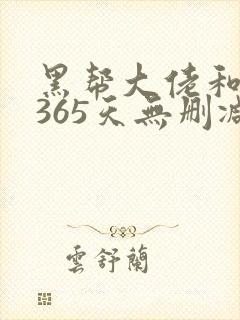 黑帮大佬和
365天無删減
雲舒蘭